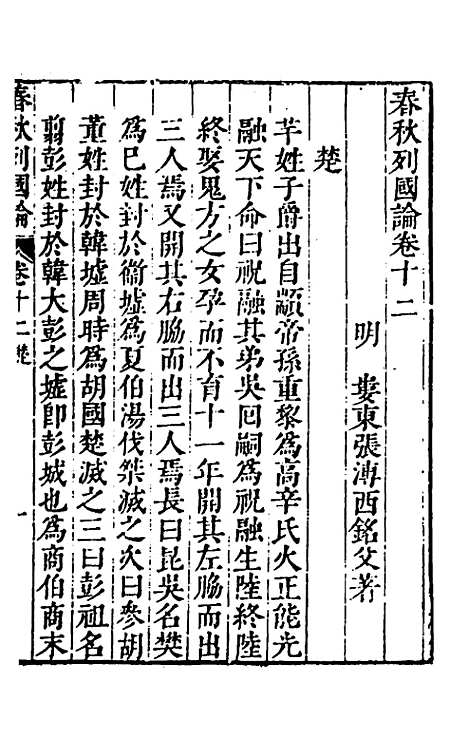 春秋列國論卷十二
明　婁東張溥西銘父著
楚
芊姓子爵出自顓帝孫重黎爲高辛氏火正能光
融天下命曰祝融其弟吳回嗣爲祝融生陸終陸
終娶鬼方之女孕而不育十一年開其左脇而出
三人焉又開其右脇而出三人焉長曰昆吳名樊
爲巳姓封於衞墟爲夏伯湯伐桀滅之次曰參胡
董姓封於韓墟周時爲胡國楚滅之三曰彭祖名
翦彭姓封於韓大彭之墟卽彭城也爲商伯商末
春秋列國論　卷十二　楚　一